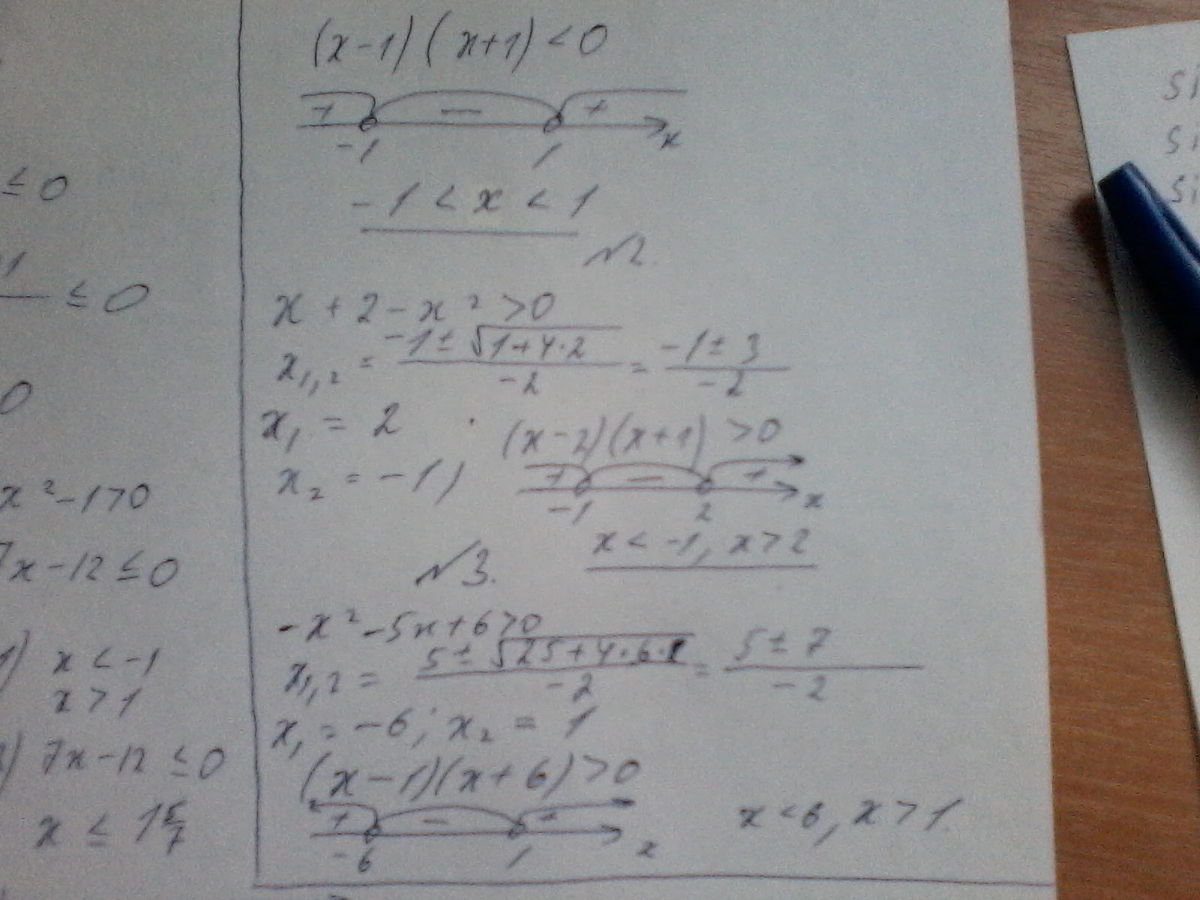 ≤ 0
1
≤ 0
0
x² - 1 > 0
7x - 12 ≤ 0
1) x < -1
x > 1
2) 7x - 12 ≤ 0
x ≤ 1 5/7
(x-1)(x+1) < 0
+ — +
-1 1 x
-1 < x < 1
№2.
x + 2 - x² > 0
x₁,₂ = (-1 ± √(1+4·2))/(-2) = (-1 ± 3)/(-2)
x₁ = 2 (x-2)(x+1) > 0
x₂ = -1; + — +
-1 2 x
x < -1, x > 2
№3.
-x² - 5x + 6 > 0
x₁,₂ = (5 ± √(25+4·6·1))/(-2) = (5 ± 7)/(-2)
x₁ = -6; x₂ = 1
(x-1)(x+6) > 0
+ - +
-6 1 x
x < 6, x > 1.
si
si
si